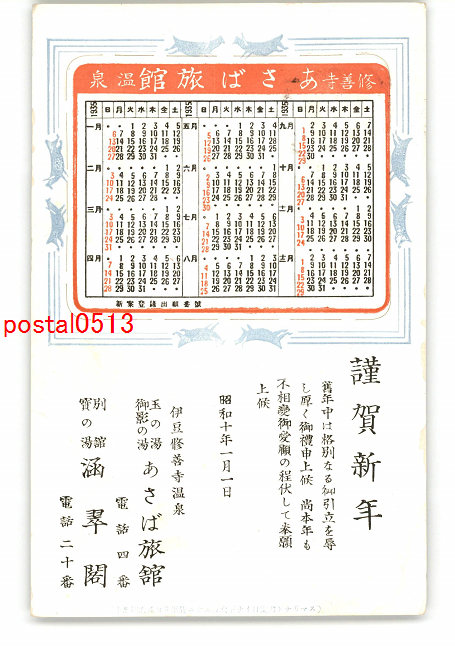 修善寺 あさば旅館 温泉
1935 日 月 火 水 木 金 土
一月
1 2 3 4 5
6 7 8 9 10 11 12
13 14 15 16 17 18 19
20 21 22 23 24 25 26
27 28 29 30 31
二月
1 2
3 4 5 6 7 8 9
10 11 12 13 14 15 16
17 18 19 20 21 22 23
24 25 26 27 28
三月
1 2
3 4 5 6 7 8 9
10 11 12 13 14 15 16
17 18 19 20 21 22 23
24 25 26 27 28 29 30
31
四月
1 2 3 4 5 6
7 8 9 10 11 12 13
14 15 16 17 18 19 20
21 22 23 24 25 26 27
28 29 30
1935 日 月 火 水 木 金 土
五月
1 2 3 4
5 6 7 8 9 10 11
12 13 14 15 16 17 18
19 20 21 22 23 24 25
26 27 28 29 30 31
六月
1
2 3 4 5 6 7 8
9 10 11 12 13 14 15
16 17 18 19 20 21 22
23 24 25 26 27 28 29
30
七月
1 2 3 4 5 6
7 8 9 10 11 12 13
14 15 16 17 18 19 20
21 22 23 24 25 26 27
28 29 30 31
八月
1 2 3
4 5 6 7 8 9 10
11 12 13 14 15 16 17
18 19 20 21 22 23 24
25 26 27 28 29 30 31
1935 日 月 火 水 木 金 土
九月
1 2 3 4 5 6 7
8 9 10 11 12 13 14
15 16 17 18 19 20 21
22 23 24 25 26 27 28
29 30
十月
1 2 3 4 5
6 7 8 9 10 11 12
13 14 15 16 17 18 19
20 21 22 23 24 25 26
27 28 29 30 31
十一月
1 2
3 4 5 6 7 8 9
10 11 12 13 14 15 16
17 18 19 20 21 22 23
24 25 26 27 28 29 30
十二月
1 2 3 4 5 6 7
8 9 10 11 12 13 14
15 16 17 18 19 20 21
22 23 24 25 26 27 28
29 30 31
新案登録出願番號
postal0513
謹賀新年
舊年中は格別なる御引立を辱
し厚く御禮申上候 尚本年も
不相變御愛顧の程伏して奉願
上候
昭和十年一月一日
伊豆修善寺温泉
玉の湯
御影の湯 あさば旅舘
電話四番
別舘
寳の湯 涵翠閣
電話二十番